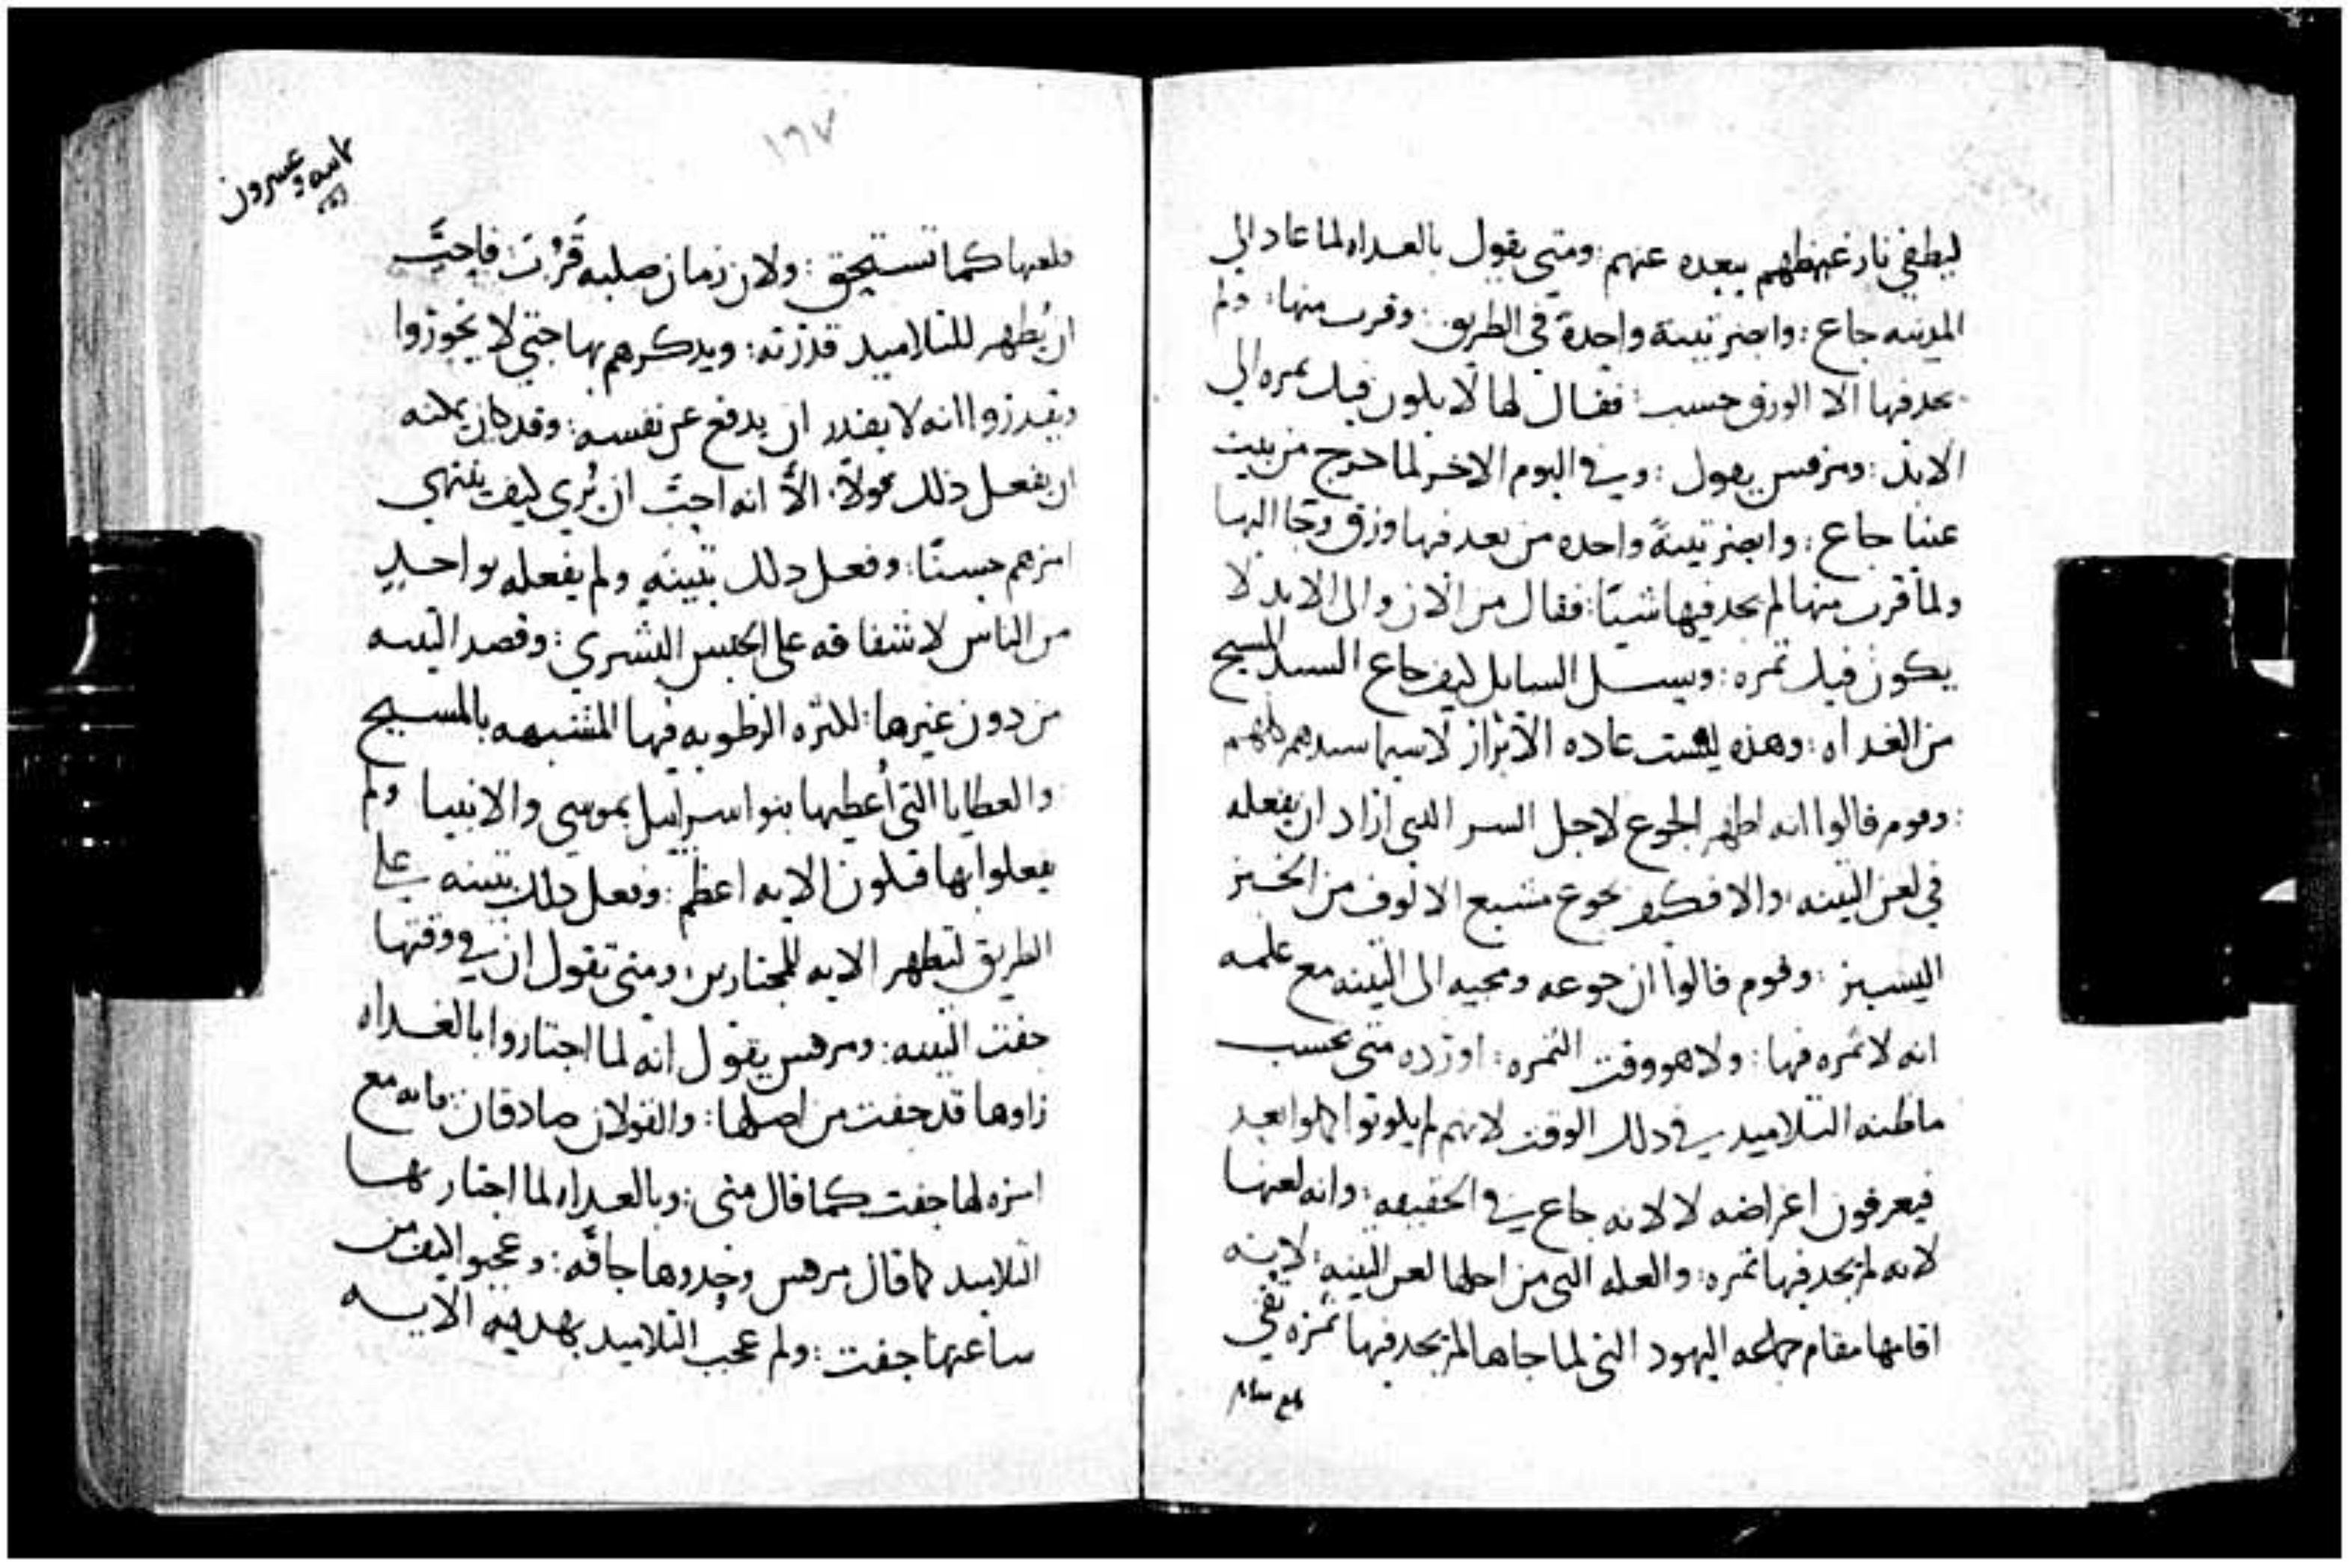 ليطفي نار غيظهم ببعده عنهم : ومتى يقول بالغداه لما عاد الى
المدينه جاع : وابصر تينة واحدة في الطريق : وقرب منها : ولم
يجد فيها الا الورق حسب : فقال لها لا يكون فيك ثمره الى
الابد : ومرقس يقول : وفي اليوم الاخر لما خرج من بيت
عنيا جاع : وابصر تينةً واحده من بعد فيها ورق وجا اليها
ولما قرب منها لم يجد فيها شيئًا : فقال من الان والى الابد لا
يكون فيك ثمره : ويسل السايل كيف جاع السيد المسيح
من الغداه : وهذه ليست عاده الابرار لاسيما سيدهم كلهم
: وقوم قالوا انه اظهر الجوع لاجل السر الذي اراد ان يفعله
في لعن التينه : والا فكيف يجوع مشبع الالوف من الخبز
اليسير : وقوم قالوا ان جوعه ومجيه الى التينه مع علمه
انه لا ثمره فيها : ولا هو وقت الثمره : اورده متى بحسب
ماظنه التلاميد في دلك الوقت لانهم لم يكونوا كملوا بعد
فيعرفون اغراضه لا لانه جاع في الحقيقه : وانه لعنها
لانه لم يجد فيها ثمره : والعله التي من اجلها لعن التينه : لانه
اقامها مقام جماعه اليهود التي لما جاها لم يجد فيها ثمره تقي
ولعنها كما تستحق : ولان زمان صلبه قَرُبَ فاحبَّ
ان يُظهر للتلاميد قدرته : ويدكرهم بها حتى لا يخوروا
ويقدروا انه لا يقدر ان يدفع عن نفسه : وقد كان يمكنه
ان يفعل ذلك الاَّ انه احبَّ ان يُري كيف ينتهي
امرهم حسنًا : وفعل دلك بتينهٍ ولم يفعله بواحدٍ
من الناس لاشفاقه على الجنس البشري : وقصد التينه
من دون غيرها : لكثره الرطوبه فيها المشبهه بالمسيح
والعطايا التي اُعطيها بنو اسراييل بموسى والانبيا ولم
يعملوا بها فتكون الايه اعظم : وفعل دلك بتينه على
الطريق لتظهر الايه للمجتازين : ومتى تقول ان في وقتها
جفت التينه : ومرقس يقول انه لما اجتازوا بالغداه
راوها قد جفت من اصلها : والقولان صادقان : فانه مع
امره لها جفت كما قال متى : وبالغداه لما اجتاز بها
التلاميد كما قال مرقس وجدوها جافّه : وعجبوا كيف من
ساعتها جفت : ولم عجب التلاميد بهديه الايه